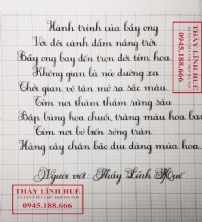 Hành trình của bầy ong
Với đôi cánh đẫm nắng trời
Bầy ong bay đến trọn đời tìm hoa.
Không gian là nẻo đường xa
Thời gian vô tận mở ra sắc màu.
Tìm nơi thăm thẳm rừng sâu
Bập bùng hoa chuối, trắng màu hoa ban.
Tìm nơi bờ biển sóng tràn
Hàng cây chắn bão dịu dàng mùa hoa.
Người viết: Thầy Lĩnh Huế
THẦY LĨNH HUẾ
0945.188.666
THẦY LĨNH HUẾ
0945.188.666